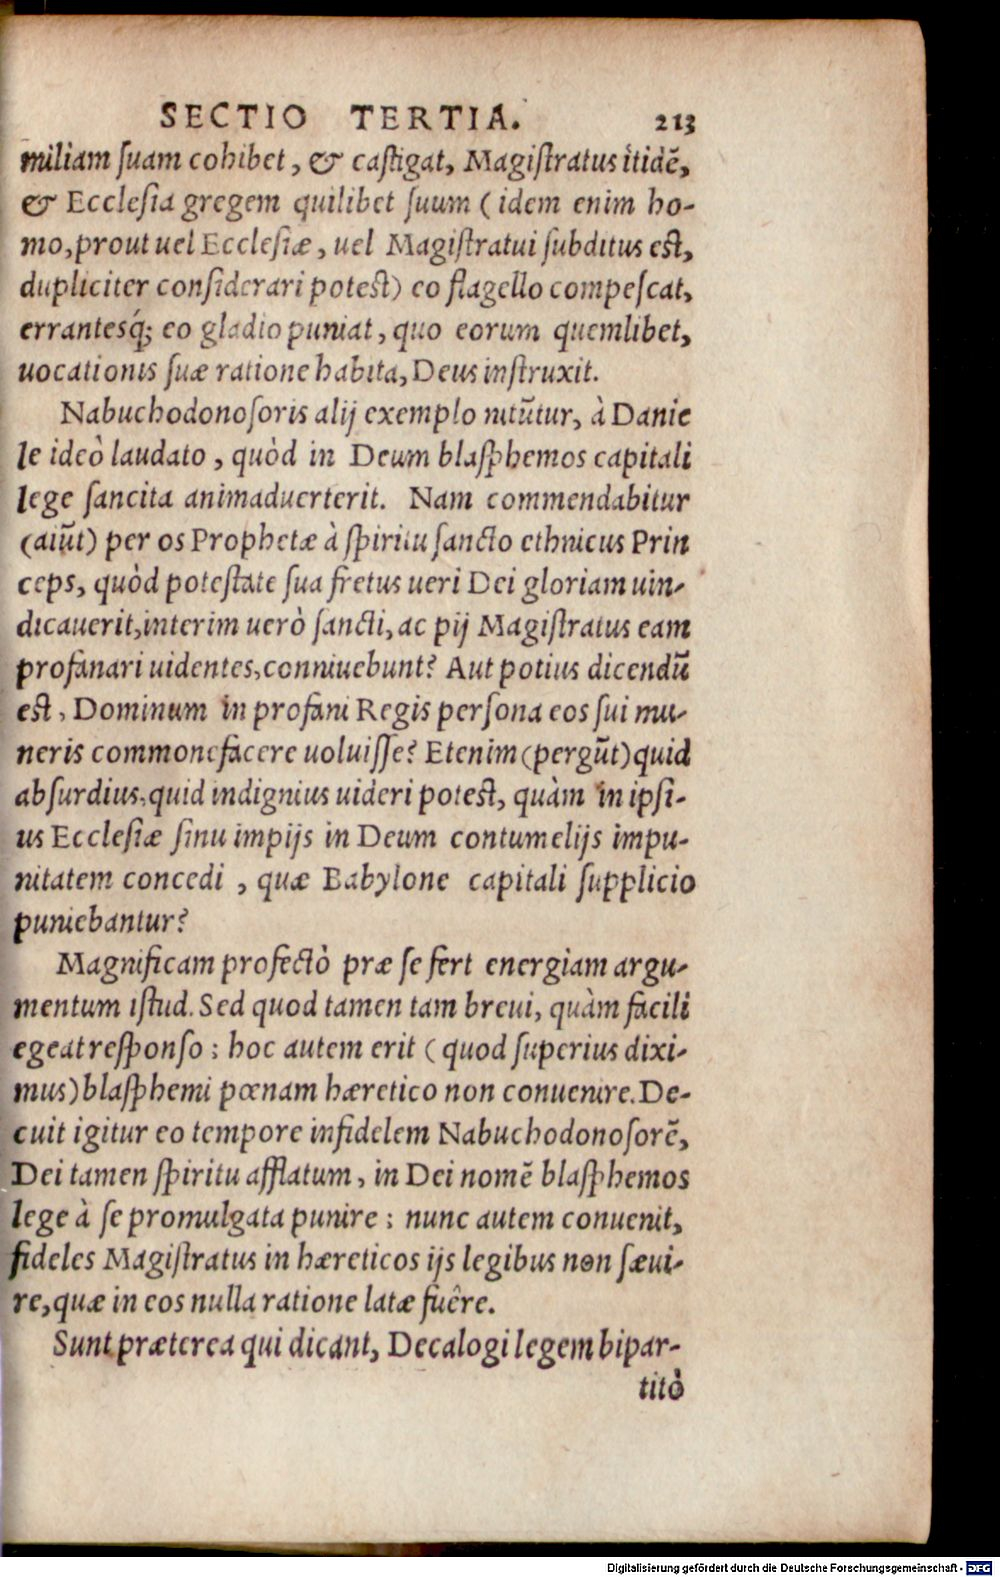 SECTIO TERTIA. 213
miliam ſuam cohibet, & caſtigat, Magiſtratus itidē,
& Eccleſia gregem quilibet ſuum (idem enim ho-
mo, prout uel Eccleſiæ, uel Magiſtratui ſubditus eſt,
dupliciter conſiderari poteſt) eo flagello compeſcat,
errantesq́; eo gladio puniat, quo eorum quemlibet,
uocationis ſuæ ratione habita, Deus inſtruxit.
Nabuchodonoſoris alij exemplo nitũtur, à Danie
le ideò laudato, quòd in Deum blaſphemos capitali
lege ſancita animaduerterit. Nam commendabitur
(aiũt) per os Prophetæ à ſpiritu ſancto ethnicus Prin
ceps, quòd poteſtate ſua fretus ueri Dei gloriam uin-
dicauerit, interim uerò ſancti, ac pij Magiſtratus eam
profanari uidentes, conniuebunt? Aut potius dicendũ
eſt, Dominum in profani Regis perſona eos ſui mu-
neris commonefacere uoluiſſe? Etenim (pergũt) quid
abſurdius, quid indignius uideri poteſt, quàm in ipſi-
us Eccleſiæ ſinu impijs in Deum contumelijs impu-
nitatem concedi, quæ Babylone capitali ſupplicio
puniebantur?
Magnificam profectò præ ſe fert energiam argu-
mentum iſtud. Sed quod tamen tam breui, quàm facili
egeat reſponſo; hoc autem erit (quod ſuperius dixi-
mus) blaſphemi pœnam hæretico non conuenire. De-
cuit igitur eo tempore infidelem Nabuchodonoſorē,
Dei tamen ſpiritu afflatum, in Dei nomē blaſphemos
lege à ſe promulgata punire; nunc autem conuenit,
fideles Magiſtratus in hæreticos ijs legibus non ſæui-
re, quæ in eos nulla ratione latæ fuêre.
Sunt præterea qui dicant, Decalogi legem bipar-
titò
Digitalisierung gefördert durch die Deutsche Forschungsgemeinschaft - DFG